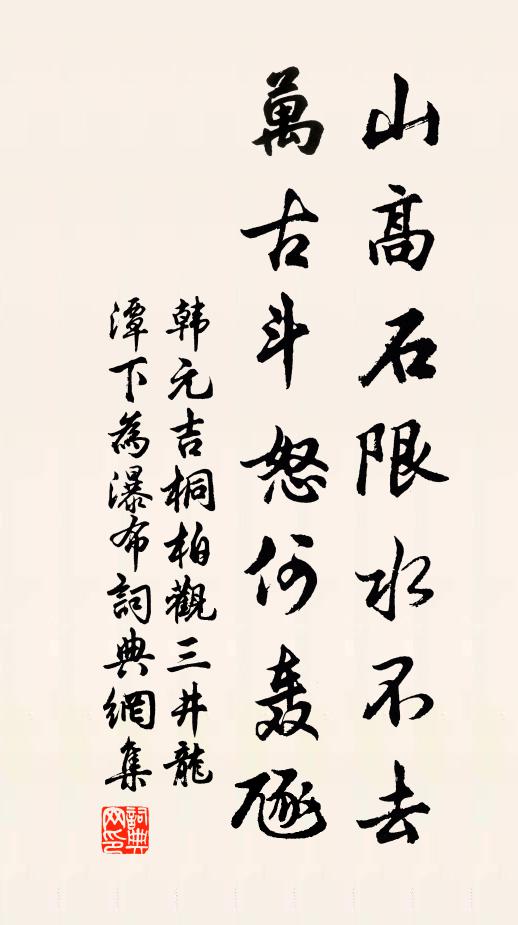 山高石限水不去
萬古斗怒何轰豗
韩元吉桐柏觀三井龍
潭下為瀑布詞典網集
詞典
网印